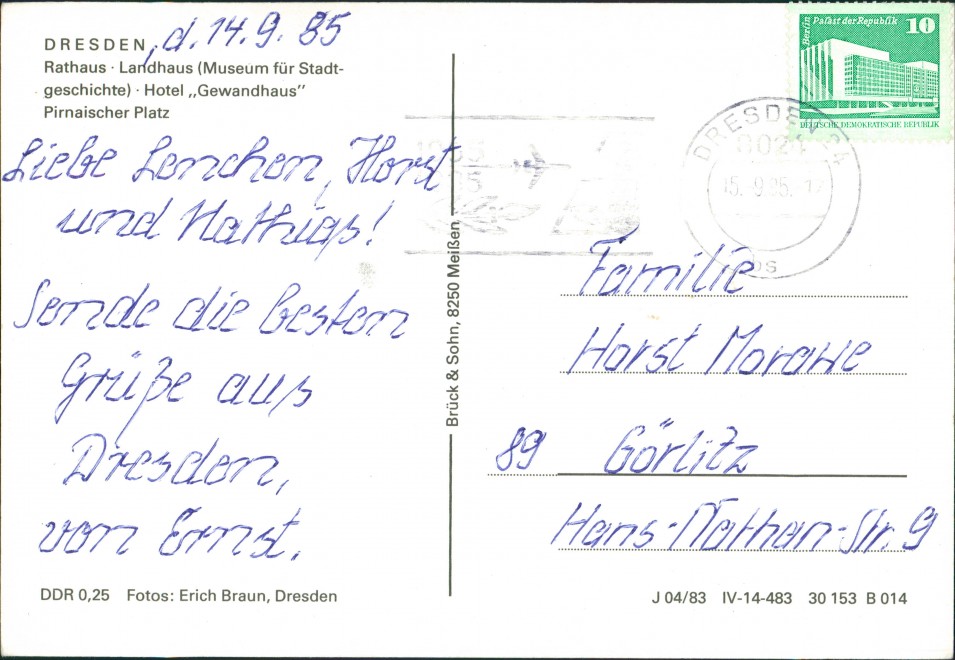 DRESDEN, d. 14.9.85
Rathaus · Landhaus (Museum für Stadt-
geschichte) · Hotel „Gewandhaus”
Pirnaischer Platz
Liebe Lenchen, Horst
und Mathias!
Sende die besten
Grüße aus
Dresden,
von Ernst.
DDR 0,25 Fotos: Erich Braun, Dresden
Brück & Sohn, 8250 Meißen
Berlin Palast der Republik 10
DEUTSCHE DEMOKRATISCHE REPUBLIK
DRESDEN
Familie
Horst Morawe
89 Görlitz
Hans-Nathan-Str. 9
J 04/83 IV-14-483 30 153 B 014